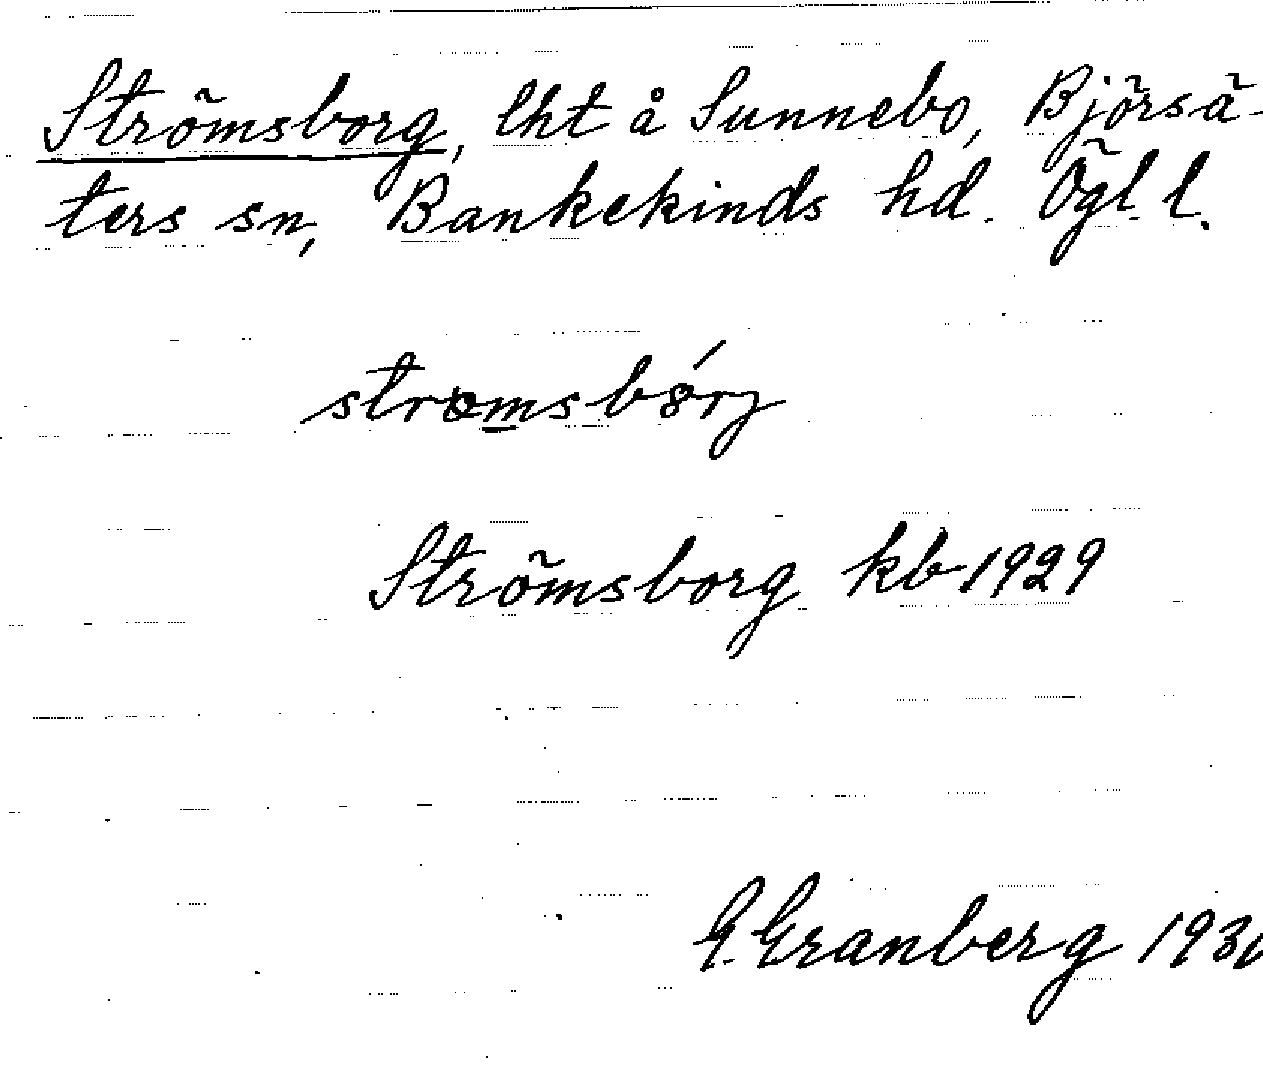 Strömsborg, lht å Sunnebo, Björsä-
ters sn, Bankekinds hd. Ögl. l.
strömsbórg
Strömsborg kb 1929
G. Granberg